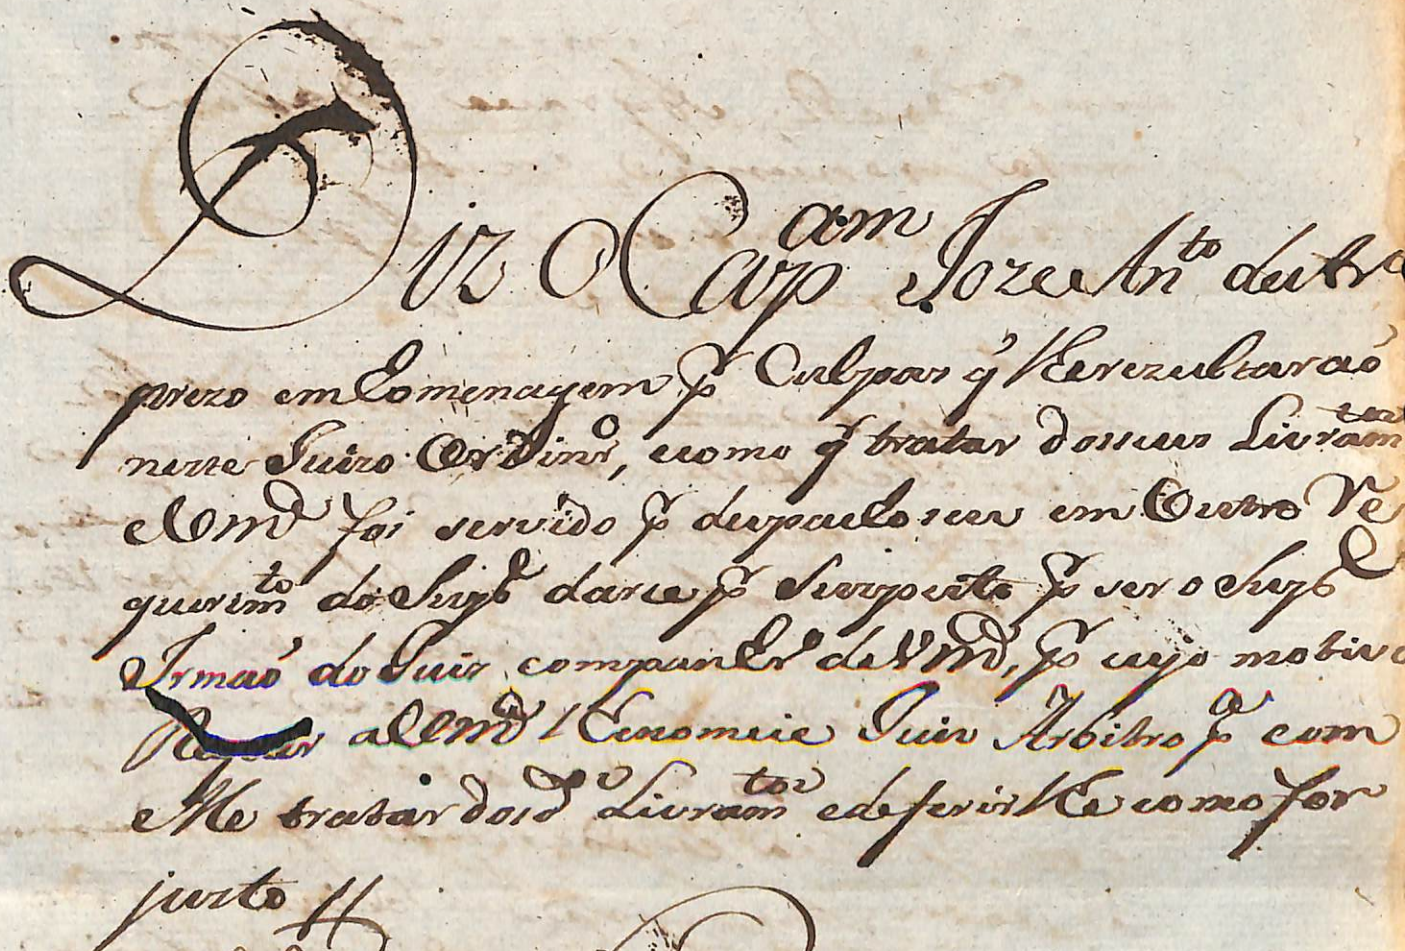 Diz O Cap.am Joze An.to deutra
prezo em homenagem p.r Culpas q' lhe rezultaraó
neste Juizo Ordin.ro, e como q.r tratar dos seus Livram.tos
e Vm.ce foi servido p.r despacho seu em Outro Re
querim.to do Sup.e darce p.r Suspeito p.r ser o Sup.e
Irmaó do Juiz companhr.o de Vm.ce, p.r cujo motivo
a Vm.ce lhe nomeie Juiz Arbitro p.a com
elle tratar dos d.os Livram.tos e deferirlhe como for
justo //